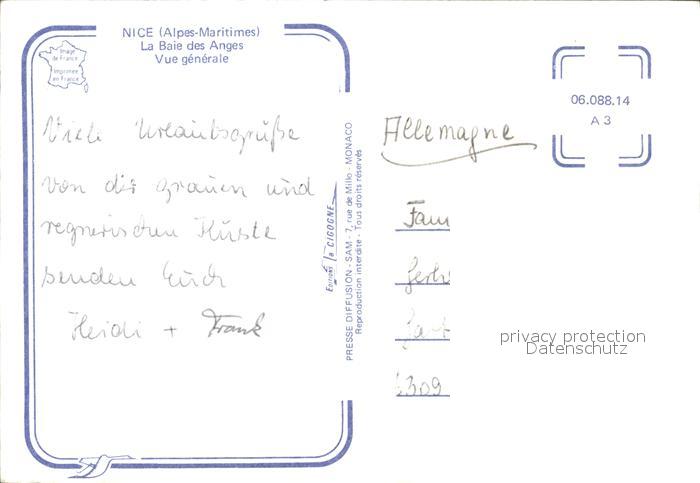 NICE (Alpes-Maritimes)
La Baie des Anges
Vue générale
Image
de France
Imprimée
en France
Viele Urlaubsgrüße
von der grauen und
regnerischen Küste
senden Euch
Heidi + Frank
Editions la CIGOGNE
PRESSE DIFFUSION - SAM - 7, rue de Millo - MONACO
Reproduction interdite - Tous droits réservés
06.088.14
A 3
Allemagne
Fam
Gerh
309
privacy protection
Datenschutz